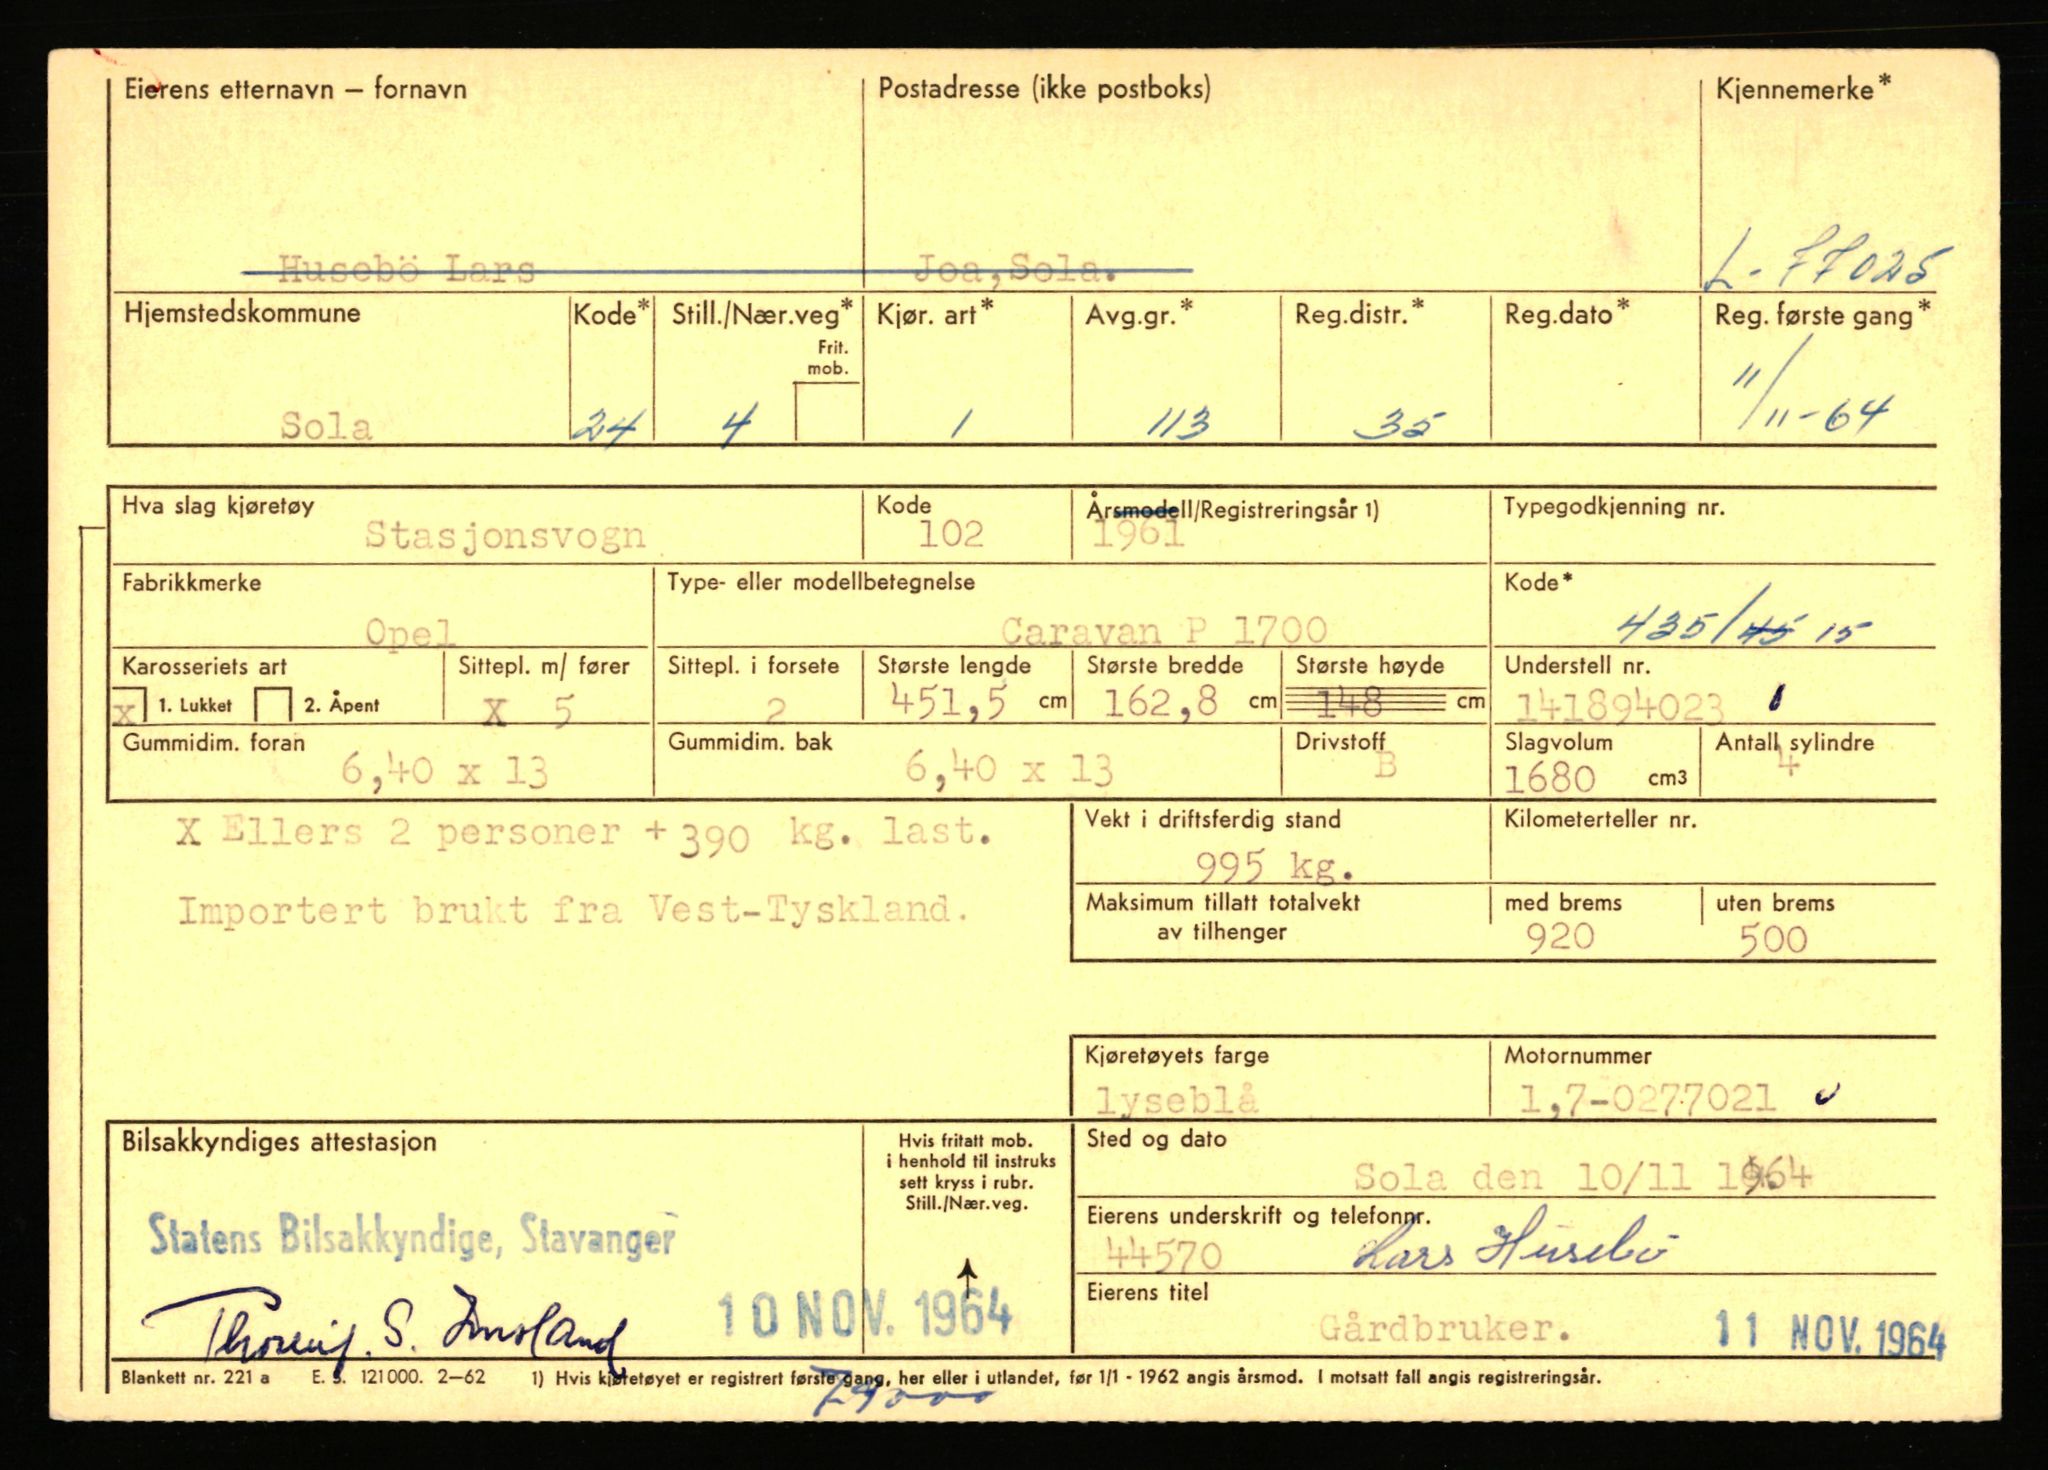 Eierens etternavn – fornavn Postadresse (ikke postboks) Kjennemerke*
Husebö Lars Joa, Sola. L-77025
Hjemstedskommune Kode* Still./Nær.veg* Kjør. art* Avg.gr.* Reg.distr.* Reg.dato* Reg. første gang*
Frit.
mob.
Sola 24 4 1 113 35 11/11-64
Hva slag kjøretøy Kode Årsmodell/Registreringsår 1) Typegodkjenning nr.
Stasjonsvogn 102 1961
Fabrikkmerke Type- eller modellbetegnelse Kode*
Opel Caravan P 1700 435/45 15
Karosseriets art Sittepl. m/ fører Sittepl. i forsete Største lengde Største bredde Største høyde Understell nr.
x 1. Lukket 2. Åpent X 5 2 451,5 cm 162,8 cm 148 cm 141894023
Gummidim. foran Gummidim. bak Drivstoff Slagvolum Antall sylindre
6,40 x 13 6,40 x 13 B 1680 cm3 4
X Ellers 2 personer + 390 kg. last. Vekt i driftsferdig stand Kilometerteller nr.
995 kg.
Importert brukt fra Vest-Tyskland. Maksimum tillatt totalvekt med brems uten brems
av tilhenger 920 500
Kjøretøyets farge Motornummer
lyseblå 1,7-0277021
Bilsakkyndiges attestasjon Hvis fritatt mob. Sted og dato
i henhold til instruks
sett kryss i rubr. Sola den 10/11 1964
Still./Nær.veg.
Statens Bilsakkyndige, Stavanger Eierens underskrift og telefonnr.
44570 Lars Husebö
10 NOV. 1964 Eierens titel
Gårdbruker. 11 NOV. 1964
Blankett nr. 221 a E. S. 121000. 2–62 1) Hvis kjøretøyet er registrert første gang, her eller i utlandet, før 1/1 - 1962 angis årsmod. I motsatt fall angis registreringsår.